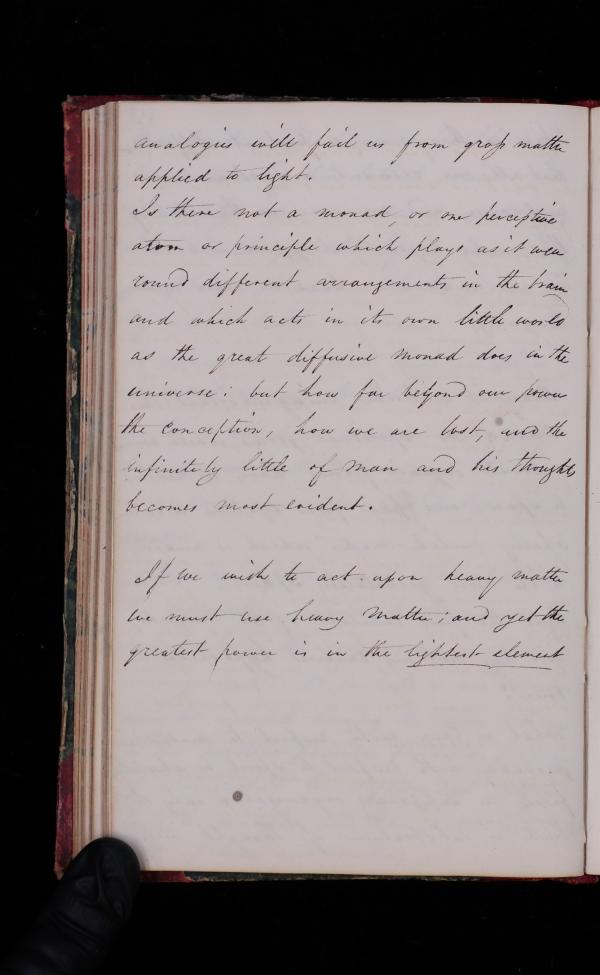 analogies will fail us from gross matter
applied to light.
Is there not a monad, or one perceptive
atom or principle which plays as it were
round different arrangements in the brain
and which acts in its own little world
as the great diffusive monad does in the
universe: but how far beyond our power
the conception, how we are lost, and the
infinitely little of man and his thoughts
becomes most evident.
If we wish to act upon heavy matter
we must use heavy matter; and yet the
greatest power is in the lightest element